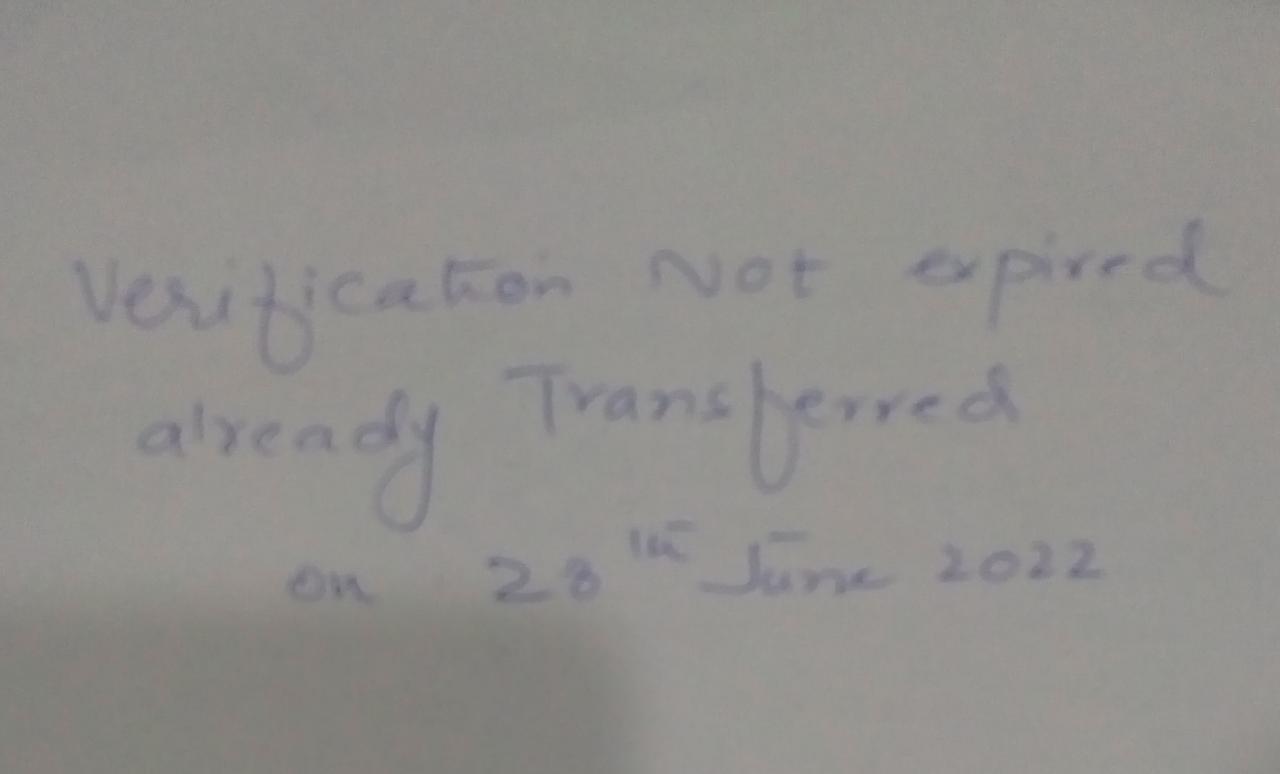 Verification Not expired
already Transferred
on 28th June 2022